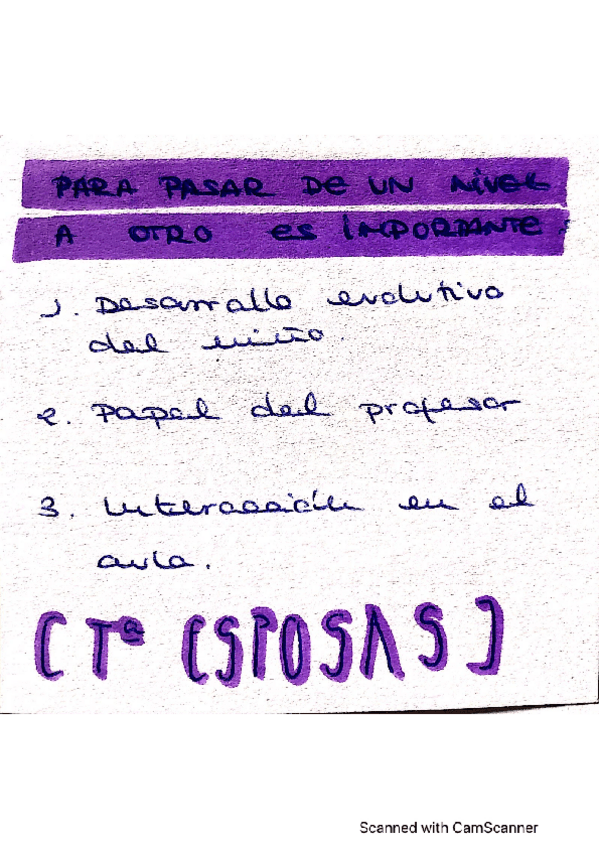 PARA PASAR DE UN NIVEL
A OTRO ES IMPORTANTE:
1. Desarrollo evolutivo
del niño.
2. Papel del profesor
3. Interacción en el
aula.
(Tª ESPOSAS)
Scanned with CamScanner